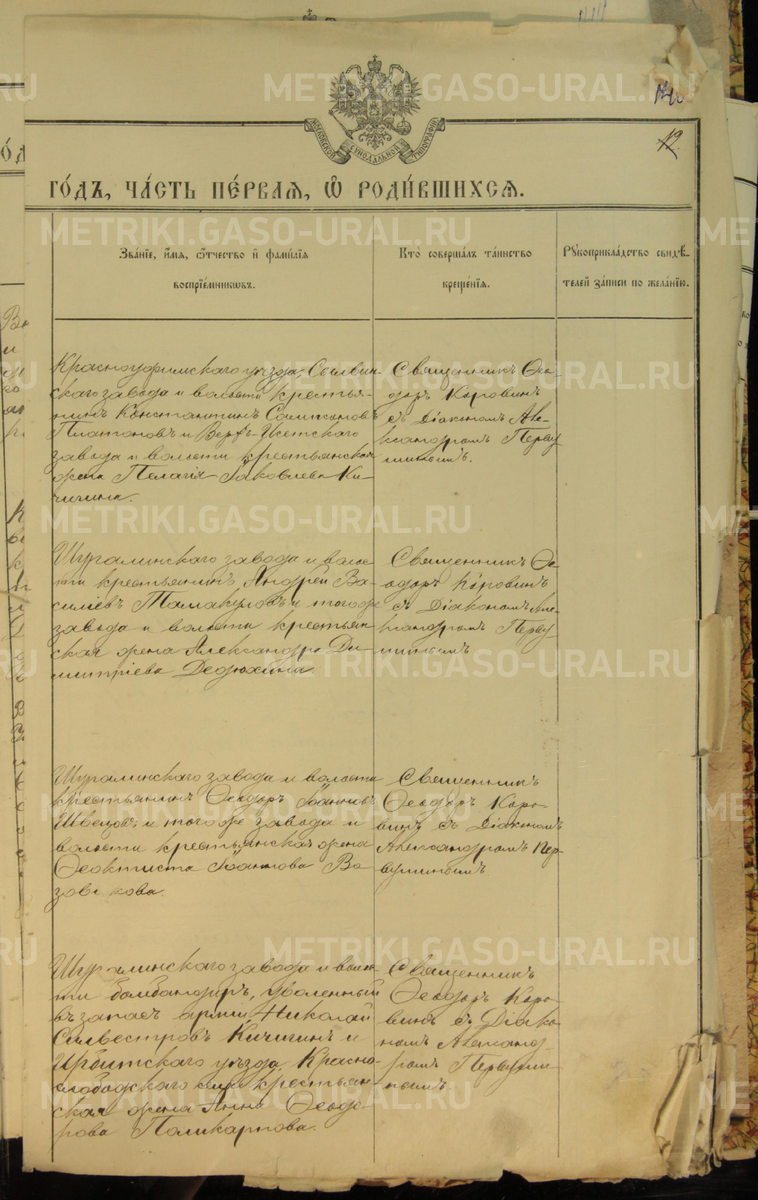 METRIKI.GASO-URAL.RU
МОСКОВСКОЙ СѴНОДАЛЬНОЙ ТИПОГРАФІИ
12
ГО́ДЪ, ЧА́СТЬ ПЕ́РВАЯ, Ѡ РОДИ́ВШИХСЯ.
METRIKI.GASO-URAL.RU
Зва́нїе, и́мя, ѻ́тчество и҆ фами́лїя
воспрїе́мниковъ.
Кто̀ соверша́лъ та́инство
креще́нїя.
Рꙋкоприкла́дство свидѣ́-
телей за́писи по жела́нїю.
Красноуфимскаго уѣзда, Сылвин-
скаго завода и волости крестья-
нинъ Константинъ Сампсоновъ
Платоновъ и Верхъ-Исетскаго
завода и волости крестьянская
жена Пелагія Іаковлева Ки-
чигина.
Священникъ Ѳео-
доръ Коровинъ
съ Діакономъ Але-
ксандромъ Перву-
шинымъ.
METRIKI.GASO-URAL.RU
Шуралинскаго завода и воло-
сти крестьянинъ Андрей Ва-
силіевъ Тамакуловъ и тогоже
завода и волости крестьян-
ская жена Александра Ди-
митріева Дедюхина.
Священникъ Ѳе-
одоръ Коровинъ
съ Діакономъ Але-
ксандромъ Перву-
шинымъ
METRIKI.GASO-URAL.RU
Шуралинскаго завода и волости
крестьянинъ Ѳеодоръ Іоанновъ
Швецовъ и тогоже завода и
волости крестьянская жена
Ѳеоктиста Іоаннова Ва-
зовскова.
Священникъ
Ѳеодоръ Коро-
винъ съ Діакономъ
Александромъ Пер-
вушинымъ
METRIKI.GASO-URAL.RU
METRIKI.GASO-URAL.RU
Шуралинскаго завода и воло-
сти бомбандиръ, уволенный
въ запасъ арміи Николай
Силвестровъ Кичигинъ и
Ирбитскаго уѣзда, Красно-
слободскаго села крестьян-
ская жена Анна Ѳеодо-
рова Поликарпова.
Священникъ
Ѳеодоръ Коро-
винъ съ Діако-
номъ Александ-
ромъ Первуши-
нымъ.
METRIKI.GASO-URAL.RU